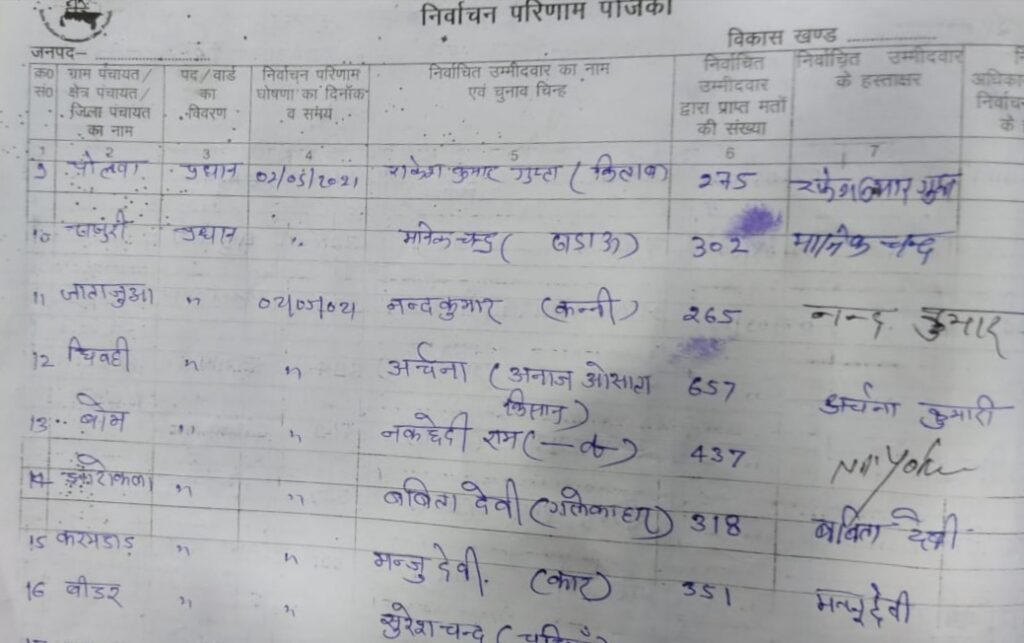 निर्वाचन परिणाम पंजिका
जनपद- विकास खण्ड
क्र० सं० ग्राम पंचायत/ क्षेत्र पंचायत/ जिला पंचायत का नाम पद/वार्ड का विवरण निर्वाचन परिणाम घोषणा का दिनाँक व समय निर्वाचित उम्मीदवार का नाम एवं चुनाव चिन्ह निर्वाचित उम्मीदवार द्वारा प्राप्त मतों की संख्या निर्वाचित उम्मीदवार के हस्ताक्षर
1 2 3 4 5 6 7
9 पोलवा प्रधान 02/05/2021 राकेश कुमार गुप्ता (किताब) 275 राकेश कुमार गुप्ता
10 खजुरी प्रधान " मानिक चन्द (खडाऊ) 302 मानिक चन्द
11 जाताजुआ " 02/05/021 नन्दकुमार (कन्नी) 265 नन्द कुमार
12 " " अर्चना (अनाज ओसाता किसान) 657 अर्चना कुमारी
13 बोम " " नकछेदी राम 437
14 " " बबिता देवी (गलेकाहार) 318 बबिता देवी
15 करमडाड़ " " मन्जु देवी. (कार) 351 मन्जू देवी
16 बीडर " " सुरेश चन्द